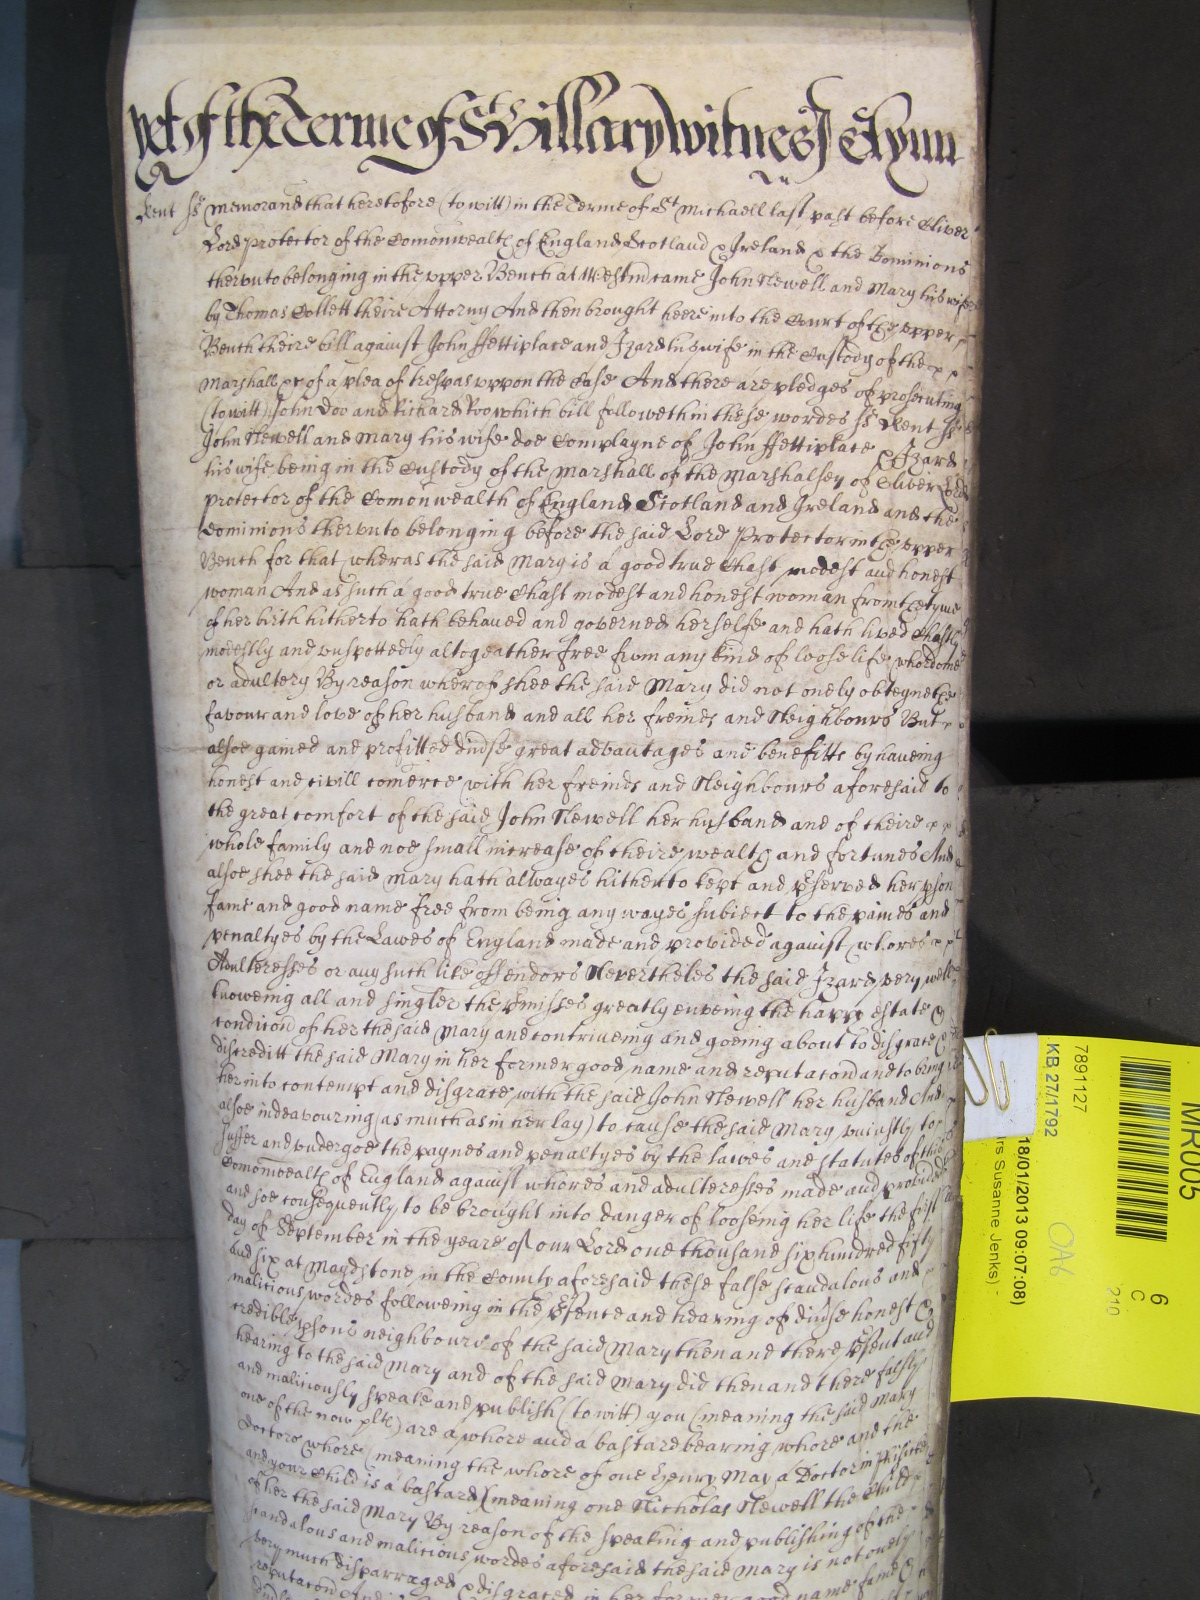 yet of the Terme of St Hillary witnes J Glynn
Kent ss Memorand that heretofore (to witt) in the Terme of St Michaell last past before Oliver
Lord protector of the Comonwealth of England Scotland & Ireland & the Dominions
therunto belonging in the upper Bench at Westm came John Newell and Mary his wife
by Thomas Collett theire Attorny And then brought heere into the Court of the upper
Bench theire bill against John ffettiplace and Izard his wife in the Custody of the
Marshall &c of a plea of trespas uppon the Case And there are pledges of prosecuting
(to witt) John Doo and Richard Roo which bill followeth in these wordes ss Kent ss
John Newell and Mary his wife doe Complayne of John ffettiplace & Izard
his wife being in the Custody of the Marshall of the Marshalsey of Oliver Lord
protector of the Comonwealth of England Scotland and Ireland and the
Dominions therunto belonging before the said Lord Protector in the upper
Bench for that wheras the said Mary is a good true Chast modest and honest
woman And as such a good true Chast modest and honest woman from the tyme
of her birth hitherto hath behaued and governed herselfe and hath lived Chastly
modestly and unspottedly altogeather free from any kind of loose life whordome
or adultery By reason wherof shee the said Mary did not onely obteyne the
favour and love of her husband and all her freinds and Neighbours But
alsoe gained and profitted diuse great advantages and benefitts by haueing
honest and civill comerce with her freinds and Neighbours aforesaid to
the great comfort of the said John Newell her husband and of theire
whole family and noe small increase of theire wealth and fortunes And
alsoe shee the said Mary hath alwayes hitherto kept and pserved her pson
fame and good name free from being any wayes subiect to the paines and
penaltyes by the Lawes of England made and provided against whores
Adulteresses or any such like offendors Nevertheles the said Izard very well
knoweing all and singler the pmisses greatly envieing the happy estate &
condicon of her the said Mary and contriveing and goeing about to disgrace &
discreditt the said Mary in her former good name and reputacon and to bring
her into contempt and disgrace with the said John Newell her husband And
alsoe indeavouring (as much as in her lay) to cause the said Mary uniustly to
suffer and undergoe the paynes and penaltyes by the lawes and statutes of this
Comonwealth of England against whores and adulteresses made and provided
and soe consequently to be brought into danger of looseing her life the first
day of September in the yeare of our Lord one thousand six hundred fifty
and six at Maydstone in the County aforesaid these false scandalous and
malicious wordes followeing in the psence and hearing of diuse honest &
credible psons neighbours of the said Mary then and there psent and
hearing to the said Mary and of the said Mary did then and there falsly
and maliciously speake and publish (to witt) you (meaning the said Mary
one of the now plts) are a whore and a bastard bearing whore and the
Doctors whore (meaning the whore of one Henry May a Doctor in Phisicke)
and your Child is a bastard (meaning one Nicholas Newell the Child
of her the said Mary By reason of the speaking and publishing of the
scandalous and malicious wordes aforesaid the said Mary is not onely
very much disparraged & disgraced in her former good name fame &
reputacon And
MR005
6
C
210
7891127
KB 27/1792
OA6
18/01/2013 09:07:08)
rs Susanne Jenks) -